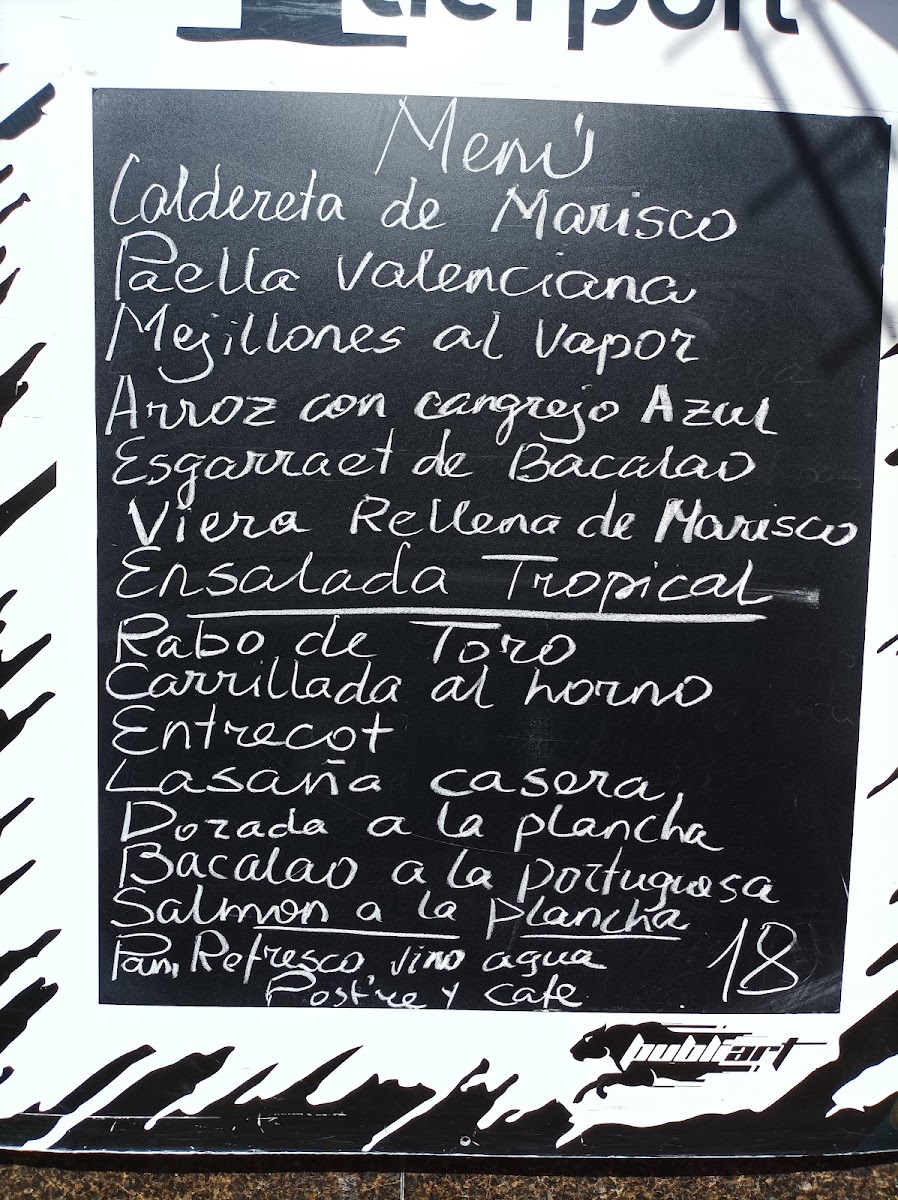 Menú
Caldereta de Marisco
Paella Valenciana
Mejillones al Vapor
Arroz con cangrejo Azul
Esgarraet de Bacalao
Viera Rellena de Marisco
Ensalada Tropical
Rabo de Toro
Carrillada al horno
Entrecot
Lasaña casera
Dorada a la plancha
Bacalao a la portuguosa
Salmon a la plancha
Pan, Refresco, vino agua
18
Postre y cafe
publiart